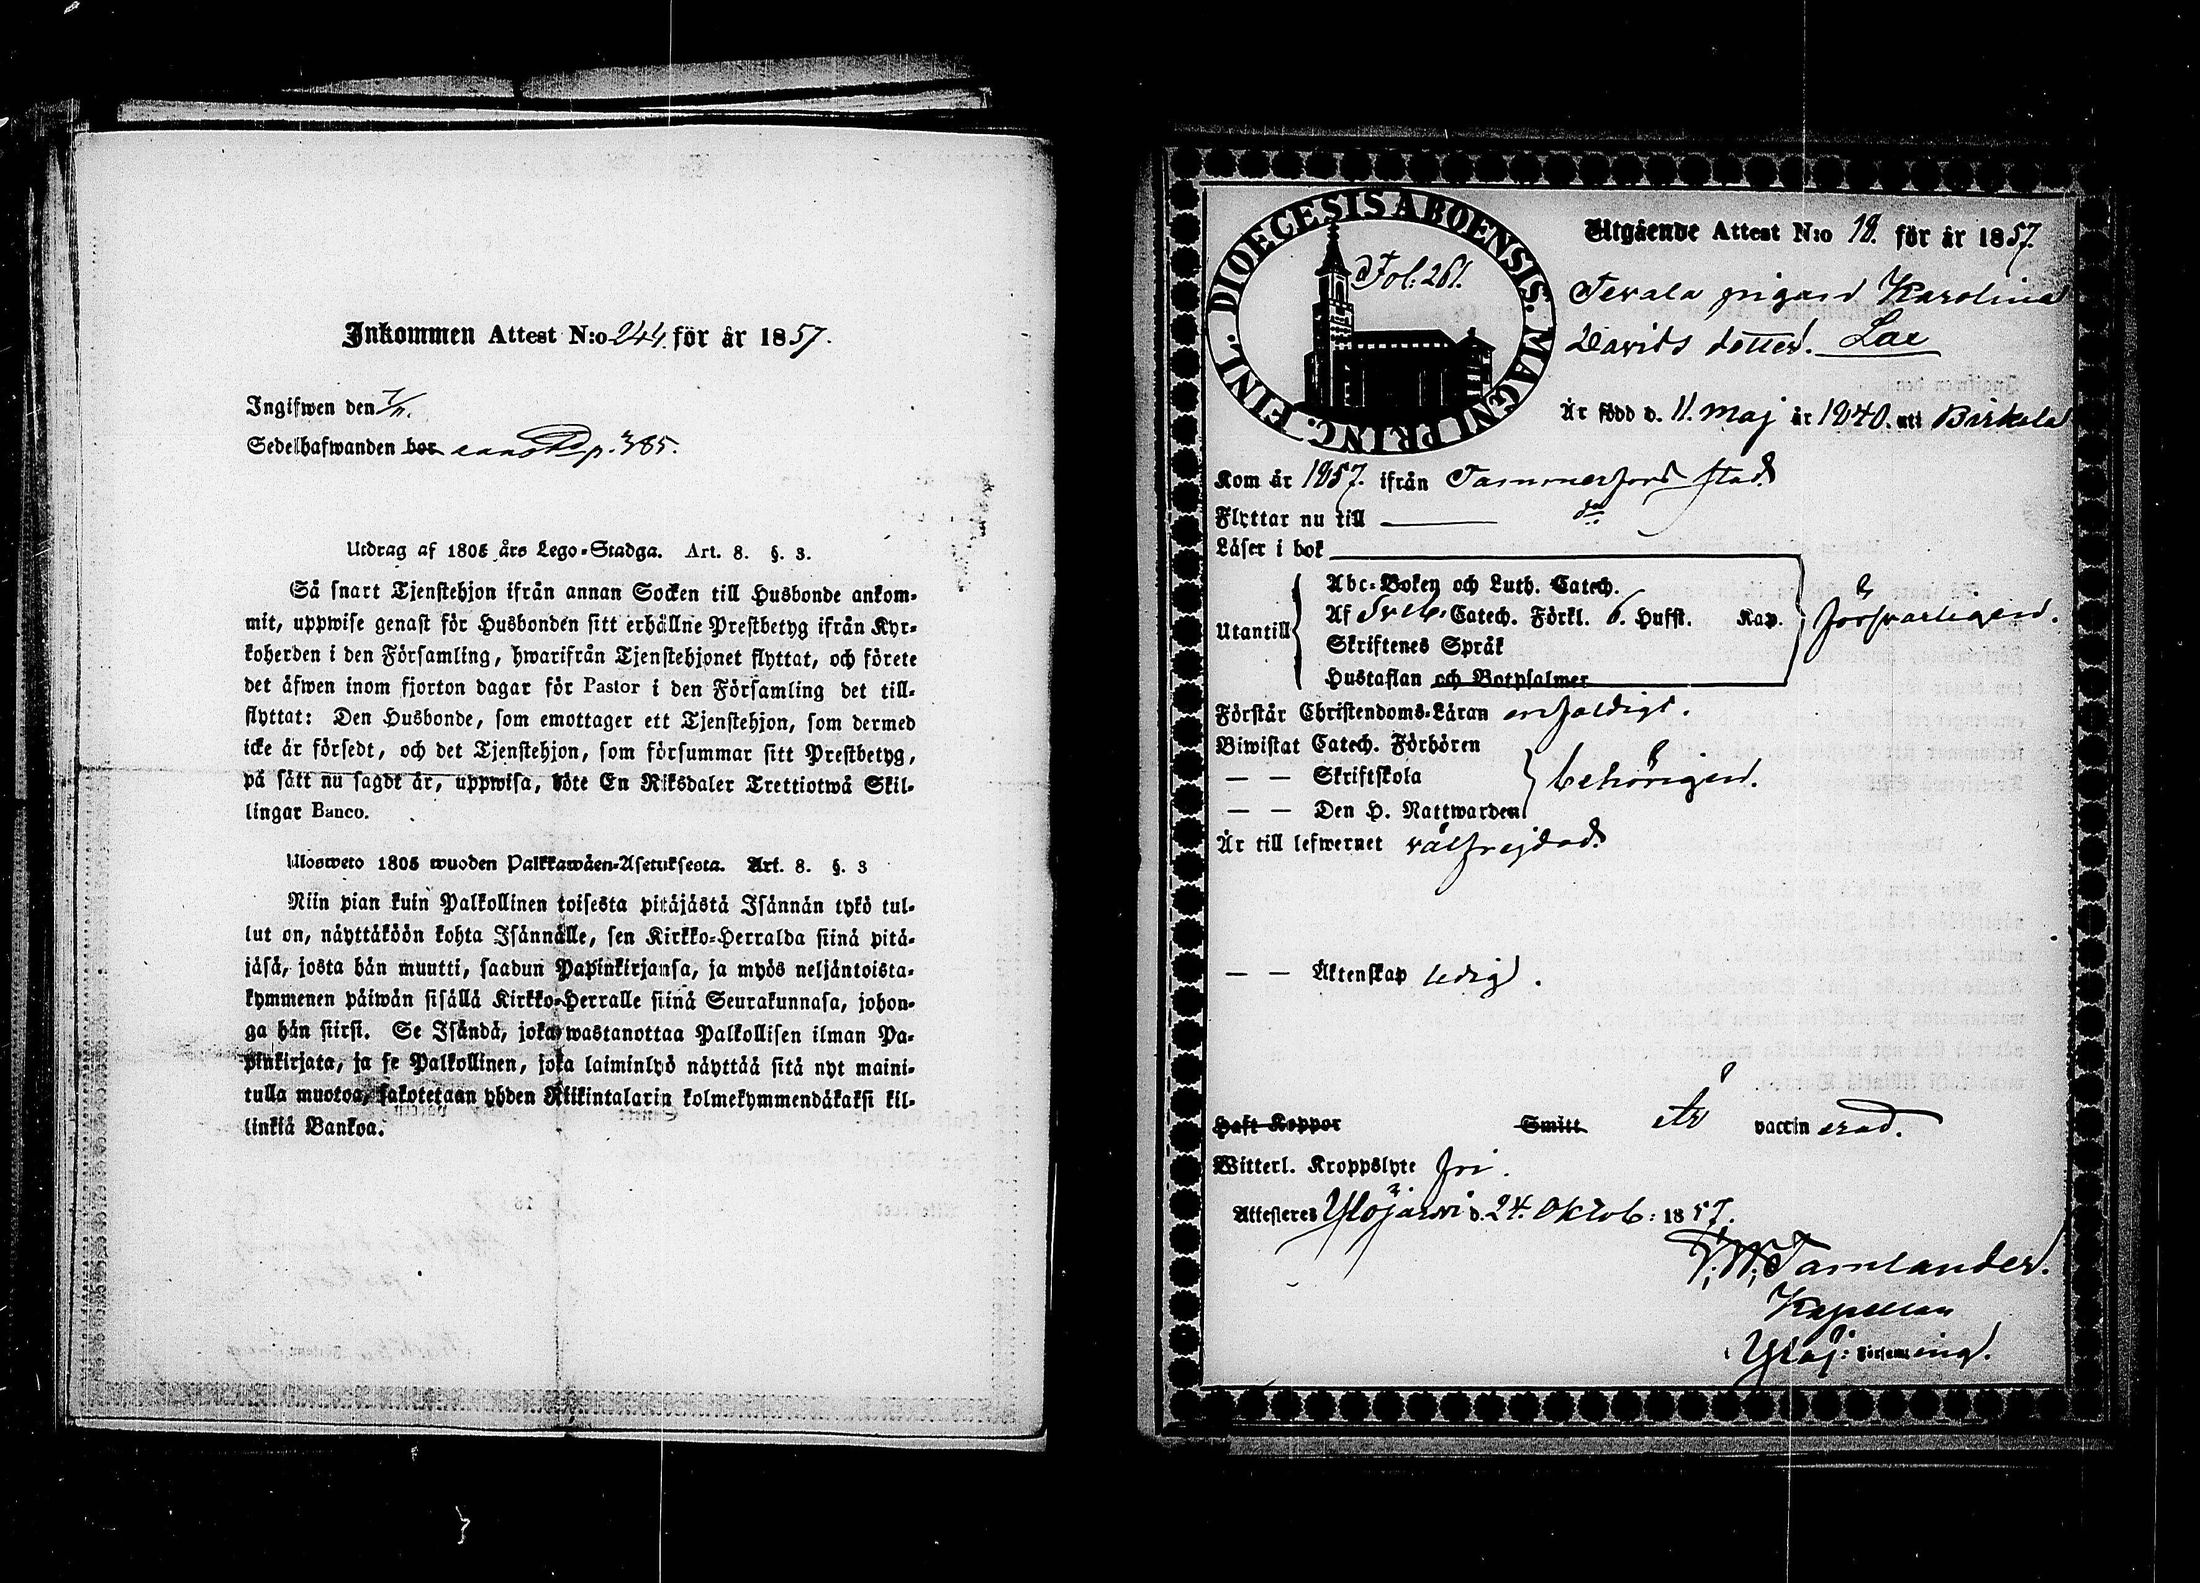 Inkommen Attest N:o 244. för år 1857.
Ingifwen den 7/11.
Sedelhafwanden bor p. 385.
Utdrag af 1805 års Lego-Stadga. Art. 8. §. 3.
Så snart Tjenstehjon ifrån annan Socken till Husbonde ankom-
mit, uppwise genast för Husbonden sitt erhållne Prestbetyg ifrån Kyr-
koherden i den Församling, hwarifrån Tjenstehjonet flyttat, och förete
det äfwen inom fjorton dagar för Pastor i den Församling det till-
flyttat: Den Husbonde, som emottager ett Tjenstehjon, som dermed
icke är försedt, och det Tjenstehjon, som försummar sitt Prestbetyg,
på sätt nu sagdt är, uppwisa, böte En Riksdaler Trettiotwå Skil-
lingar Banco.
Ulosweto 1805 wuoden Palkkawäen-Asetuksesta. Art. 8. §. 3
Niin pian kuin Palkollinen toisesta pitäjästä Isännän tykö tul-
lut on, näyttäköön kohta Isännälle, sen Kirkko-Herralda siinä pitä-
jäsä, josta hän muutti, saadun Papinkirjansa, ja myös neljäntoista-
kymmenen päiwän sisällä Kirkko-Herralle siinä Seurakunnasa, johon-
ga hän siirsi. Se Isändä, joka wastanottaa Palkollisen ilman Pa-
pinkirjata, ja se Palkollinen, joka laiminlyö näyttää sitä nyt maini-
tulla muotoa, sakotetaan yhden Riikintalarin kolmekymmendäkaksi kil-
linkiä Bankoa.
DIOECESIS ABOENSIS. MAGNI PRINC. FINL.
Fol: 261.
Utgående Attest N:o 18. för år 1857.
Terala pigan Karolina
Davids dotter. Lae
Är född d. 11. Maj år 1840. uti Birkala
Kom år 1857. ifrån Tammerfors stad
Flyttar nu till
Läser i bok
Abc-Boken och Luth. Catech.
Utantill Af Sveb. Catech. Förkl. 6. Hufst. Kap. försvarligen.
Skriftenes Språk
Hustaflan och Botpsalmer
Förstår Christendoms-Läran enfaldigt.
Biwistat Catech. Förhören
— — Skriftskola behörigen.
— — Den H. Nattwarden
Är till lefwernet välfrejdad.
— — Äktenskap ledig.
Haft Koppor Smitt Är vaccinerad.
Witterl. Kroppslyte fri.
Attesteres Ylöjärvi d. 24. Oktob: 1857.
Tamlander.
Kapellan
Ylöj: Församling.